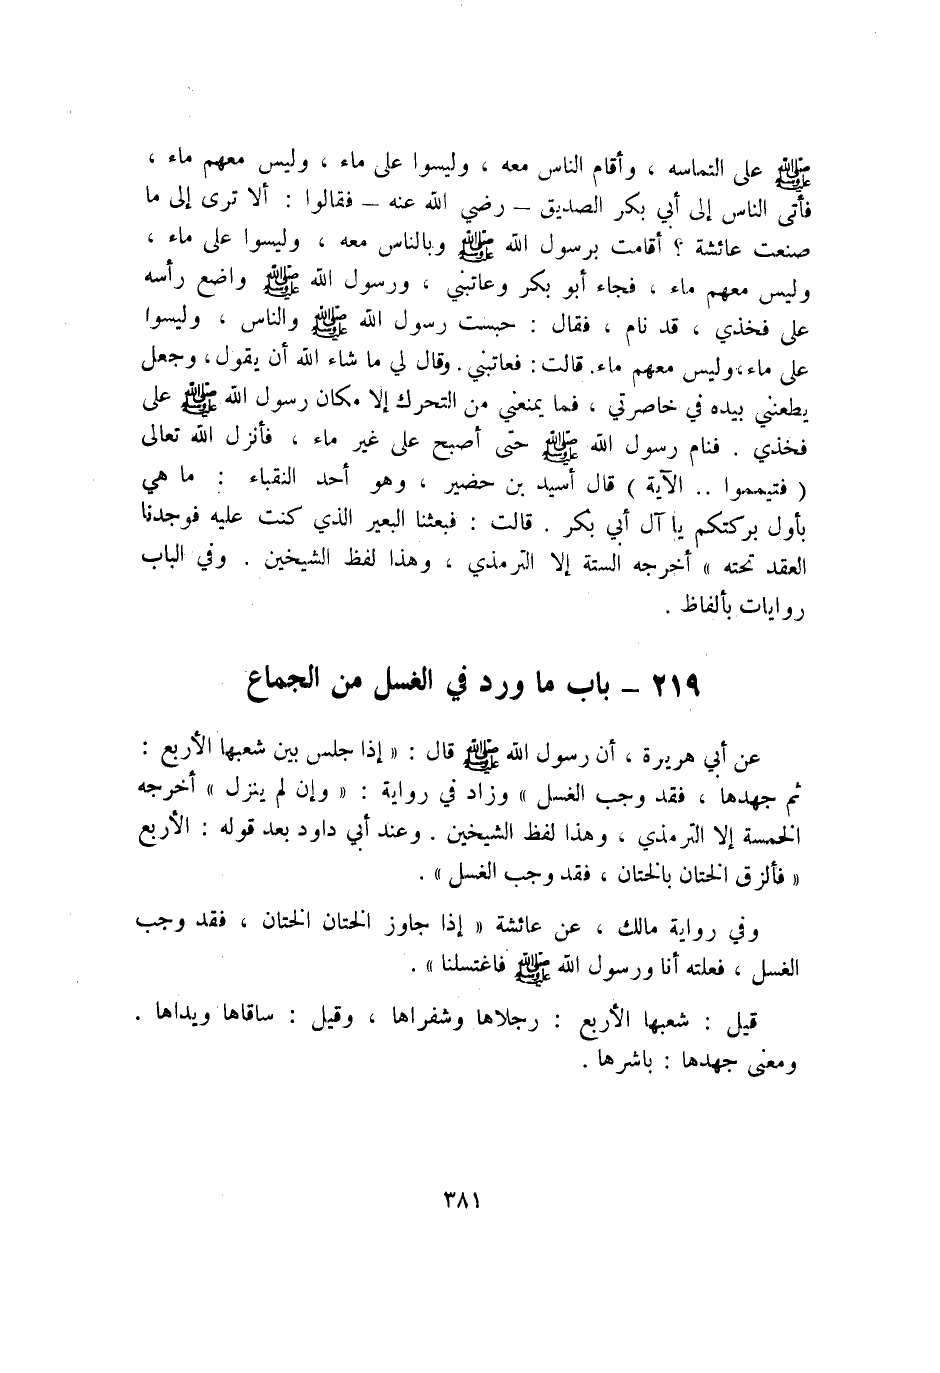 ﷺ على التماسه ، وأقام الناس معه ، وليسوا على ماء ، وليس معهم ماء ،
فأتى الناس إلى أبي بكر الصديق – رضي الله عنه – فقالوا : ألا ترى إلى ما
صنعت عائشة ؟ أقامت برسول الله ﷺ وبالناس معه ، وليسوا على ماء ،
وليس معهم ماء ، فجاء أبو بكر وعاتبني ، ورسول الله ﷺ واضع رأسه
على فخذي ، قد نام ، فقال : حبست رسول الله ﷺ والناس ، وليسوا
على ماء، وليس معهم ماء. قالت: فعاتبني. وقال لي ما شاء الله أن يقول، وجعل
يطعنني بيده في خاصرتي ، فما يمنعني من التحرك إلا مكان رسول الله ﷺ على
فخذي . فنام رسول الله ﷺ حتى أصبح على غير ماء ، فأنزل الله تعالى
( فتيمموا .. الآية ) قال أسيد بن حضير ، وهو أحد النقباء : ما هي
بأول بركتكم يا آل أبي بكر . قالت : فبعثنا البعير الذي كنت عليه فوجدنا
العقد تحته » أخرجه الستة إلا الترمذي ، وهذا لفظ الشيخين . وفي الباب
روايات بألفاظ .
٢١٩ – باب ما ورد في الغسل من الجماع
عن أبي هريرة ، أن رسول الله ﷺ قال : « إذا جلس بين شعبها الأربع :
ثم جهدها ، فقد وجب الغسل » وزاد في رواية : « وإن لم ينزل » أخرجه
الخمسة إلا الترمذي ، وهذا لفظ الشيخين . وعند أبي داود بعد قوله : الأربع
« فألزق الختان بالختان ، فقد وجب الغسل » .
وفي رواية مالك ، عن عائشة « إذا جاوز الختان الختان ، فقد وجب
الغسل ، فعلته أنا ورسول الله ﷺ فاغتسلنا » .
قيل : شعبها الأربع : رجلاها وشفراها ، وقيل : ساقاها ويداها .
ومعنى جهدها : باشرها .
٣٨١